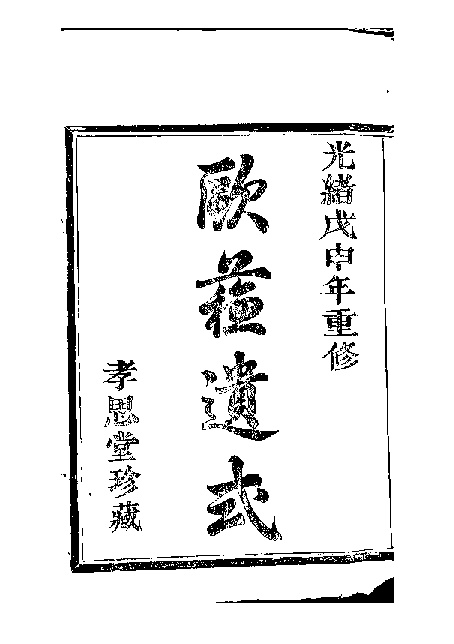 光緒戊申年重修
歐蘇遺式
孝思堂珍藏